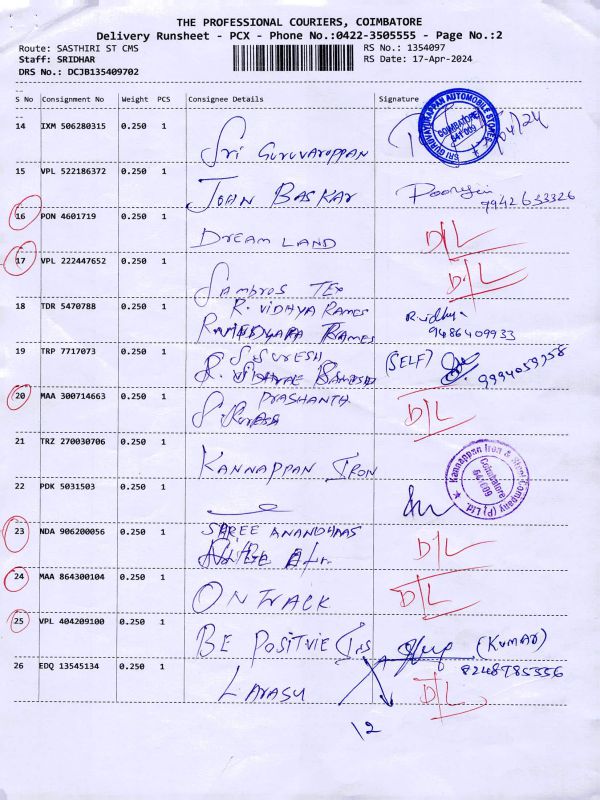 THE PROFESSIONAL COURIERS, COIMBATORE
Delivery Runsheet - PCX - Phone No.:0422-3505555 - Page No.:2
Route: SASTHIRI ST CMS RS No.: 1354097
Staff: SRIDHAR RS Date: 17-Apr-2024
DRS No.: DCJB135409702
S No Consignment No Weight PCS Consignee Details Signature
14 IXM 506280315 0.250 1 Sri Guruvaruppan 04/24
SRI GURUVAYURAPPAN AUTOMOBILE STORES COIMBATORE 641 009
15 VPL 522186372 0.250 1 JOHN BASKAR 9942633326
16 PON 4601719 0.250 1 DREAM LAND D/L
17 VPL 222447652 0.250 1 Sambros TEX D/L
18 TDR 5470788 0.250 1 R. VIDHYA RAMES R.vidhya
9486409933
19 TRP 7717073 0.250 1 S. SURESH (SELF) 9994059358
20 MAA 300714663 0.250 1 PRASHANTH D/L
21 TRZ 270030706 0.250 1 KANNAPPAN IRON
Kannappan Iron & Steel Company (P) Ltd. Coimbatore 641 009
22 PDK 5031503 0.250 1
23 NDA 906200056 0.250 1 SHREE ANANDHAAS D/L
24 MAA 864300104 0.250 1 ONTRACK D/L
25 VPL 404209100 0.250 1 BE POSITVIE (KUMAR)
8248985556
26 EDQ 13545134 0.250 1 LAVASU D/L
12